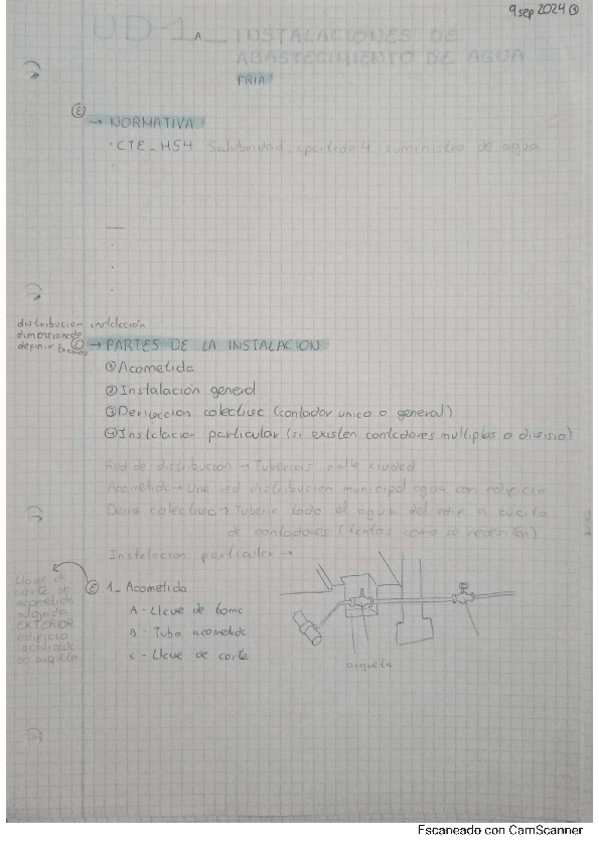 9 sep 2024
UD 1_ INSTALACIONES DE
ABASTECIMIENTO DE AGUA
FRIA
E → NORMATIVA
· CTE_HS4 Salubridad. apartado 4 suministro de agua
distribucion instalación
dimensionado
definir
E → PARTES DE LA INSTALACION
① Acometida
② Instalación general
③ Derivacion colectiva (contador unico o general)
④ Instalacion particular (si existen contadores multiples o divisio)
Red de distribución → Tuberias calle ciudad
Acometida → Une red distribucion municipal agua con edificio
Deriv colectiva → Tuberia todo el agua del edif a cuarto
de contadores (tantos como se necesiten)
Instalacion particular →
Llave de
corte de
acometida
EXTERIOR
edificio
en arqueta
E 1_ Acometida
A - Llave de toma
B - Tubo acometida
C - Llave de corte
arqueta
Escaneado con CamScanner